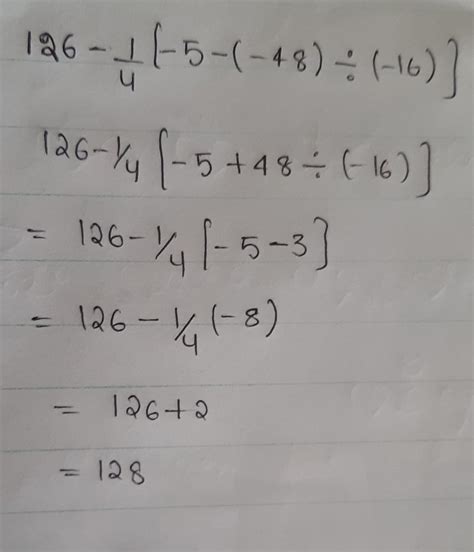 126 - 1/4 [-5 - (-48) ÷ (-16)]
126 - 1/4 [-5 + 48 ÷ (-16)]
= 126 - 1/4 [-5 - 3]
= 126 - 1/4 (-8)
= 126 + 2
= 128